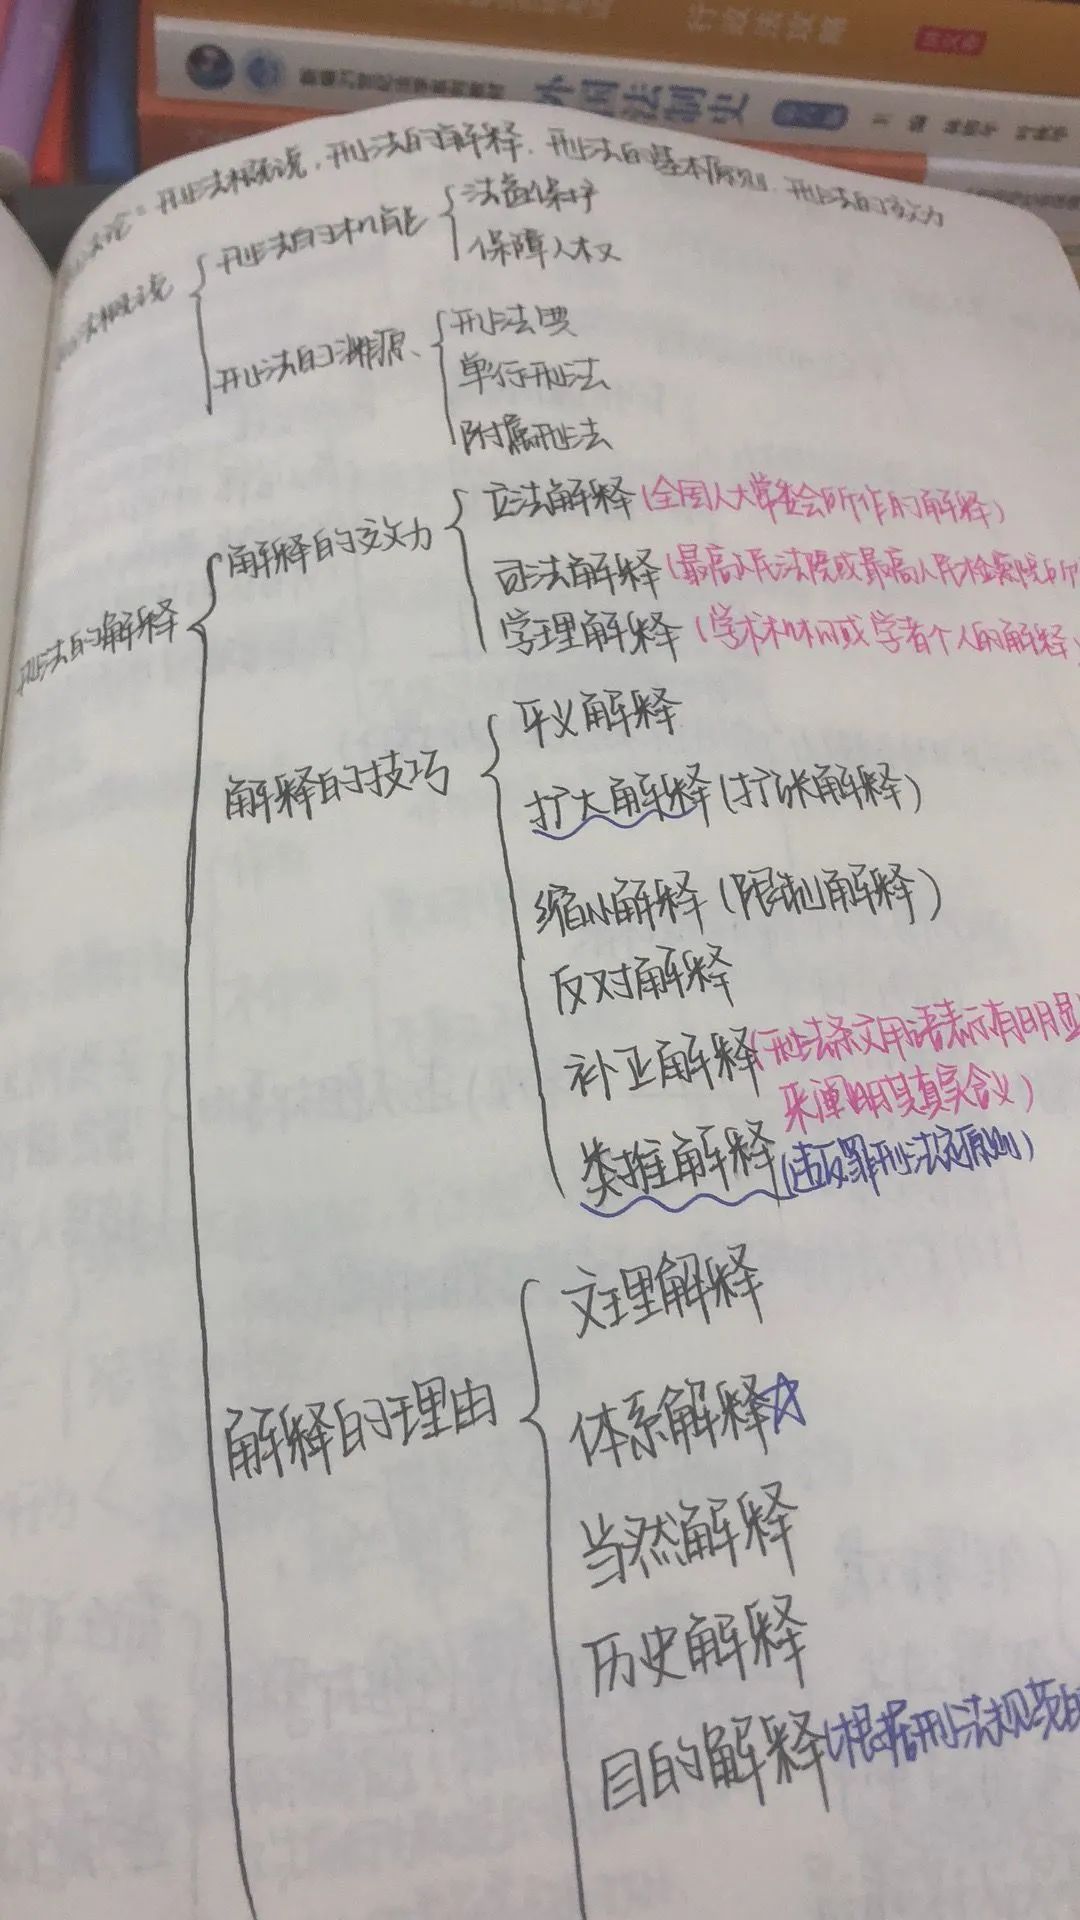 外国法制史
论：刑法概说、刑法的解释、刑法的基本原则、刑法的效力
法概说
刑法的机能
法益保护
保障人权
刑法的渊源、
刑法典
单行刑法
附属刑法
刑法的解释
解释的效力
立法解释(全国人大常委会所作的解释)
司法解释(最高人民法院或最高人民检察院所
学理解释(学术机构或学者个人的解释)
解释的技巧
平义解释
扩大解释(扩张解释)
缩小解释(限制解释)
反对解释
补正解释(刑法条文用语表示有明显
来阐明其真实含义)
类推解释(违反罪刑法定原则)
解释的理由
文理解释
体系解释☆
当然解释
历史解释
目的解释(根据刑法规范的